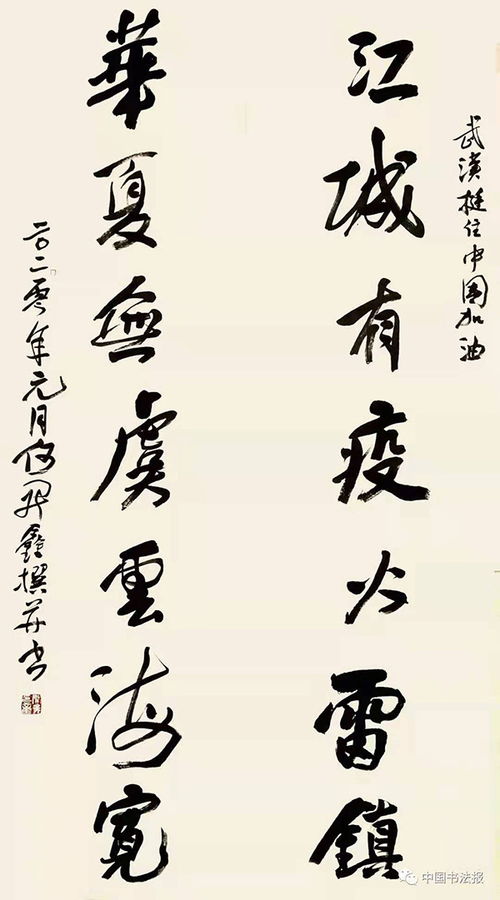 武漢挺住中國加油
江城有疫火雷鎮
華夏無虞雲海寬
二〇二零年元月何開鑫撰并书
中国书法报